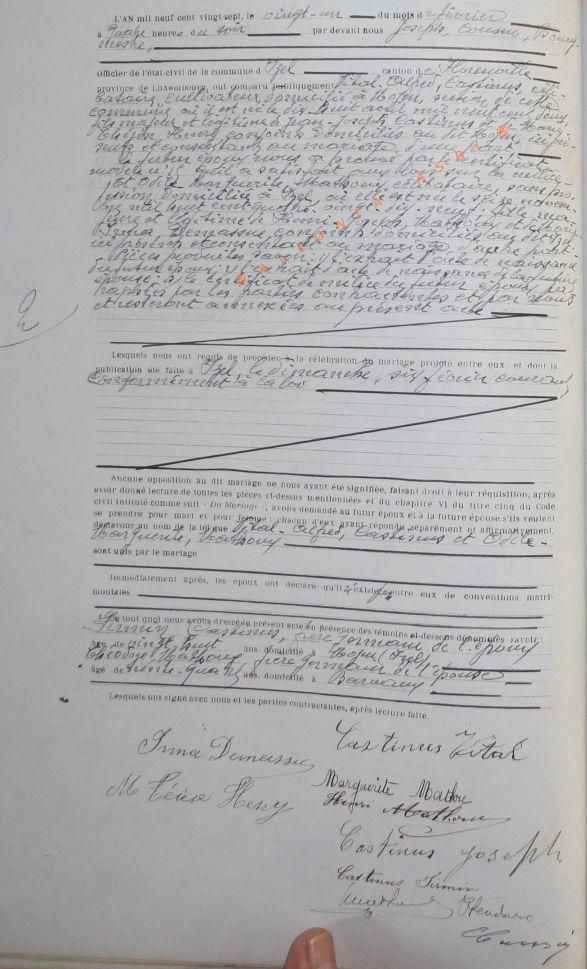 L'AN mil neuf cent vingt-sept, le vingt-un du mois d février
à quatre heures du soir par devant nous Joseph, Bourg-
mestre,
Officier de l'état-civil de la commune d Izel canton de Florenville
province de Luxembourg, ont comparu publiquement Vital-Alfred, Castinus, céli-
bataire, cultivateur domicilié à Moyen, section de cette
commune où il est né le dix-huit août mil neuf cent deux,
fils majeur et légitime de Jean-Joseph, Castinus et de Marie
Henry, conjoints domiciliés au dit Moyen, ici pré-
sents et consentant au mariage d'une part
Le futur époux nous a prouvé par le certificat
modèle qu'il a satisfait aux lois sur la milice
et Odile-Marguerite, Mathony, célibataire, sans pro-
fession, domiciliée à Izel, où elle est née le seize novem-
bre mil huit cent quatre-vingt-dix-neuf, fille ma-
jeure et légitime de Henri-Joseph, Mathony et de Marie-
Irma, Demasse, conjoints domiciliés au dit Izel
ici présents et consentant au mariage d'autre part
Pièces produites savoir: 1) l'extrait d'acte de naissance
du futur époux; 2) l'extrait d'acte de naissance de la future
épouse; 3) le certificat de milice du futur époux, pa-
raphées par les parties contractantes et par nous
et resteront annexées au présent acte
WALLONIA ASBL ©
Lesquels nous ont requis de procéder à la célébration du mariage projeté entre eux, et dont la
publication été faite à Izel, le dimanche, six février courant
conformément à la loi
Aucune opposition au dit mariage ne nous ayant été signifiée, faisant droit à leur réquisition, après
avoir donné lecture de toutes les pièces ci-dessus mentionnées et du chapitre VI du titre cinq du Code
civil intitulé comme suit « Du Mariage », avons demandé au futur époux et à la future épouse s'ils veulent
se prendre pour mari et pour femme; chacun d'eux ayant répondu séparément et affirmativement,
déclarons au nom de la loi que Vital-Alfred, Castinus et Odile-
Marguerite, Mathony
sont unis par le mariage
Immédiatement après, les époux ont déclaré qu'il n'existe pas entre eux de conventions matri-
moniales
De tout quoi nous avons dressé le présent acte en présence des témoins ci-dessous dénommés savoir:
Firmin, Castinus, frère germain de l'époux
âgé de vingt huit ans, domicilié à Moyen (Izel)
Théodore, Mathony, frère germain de l'épouse
âgé de trente-quatre ans, domicilié à
Lesquels ont signé avec nous et les parties contractantes, après lecture faite.
Castinus Vital
Irma Demasse
Marguerite Mathony
M Henry
Henri Mathony
Castinus Joseph
Castinus Firmin
Mathony Théodore